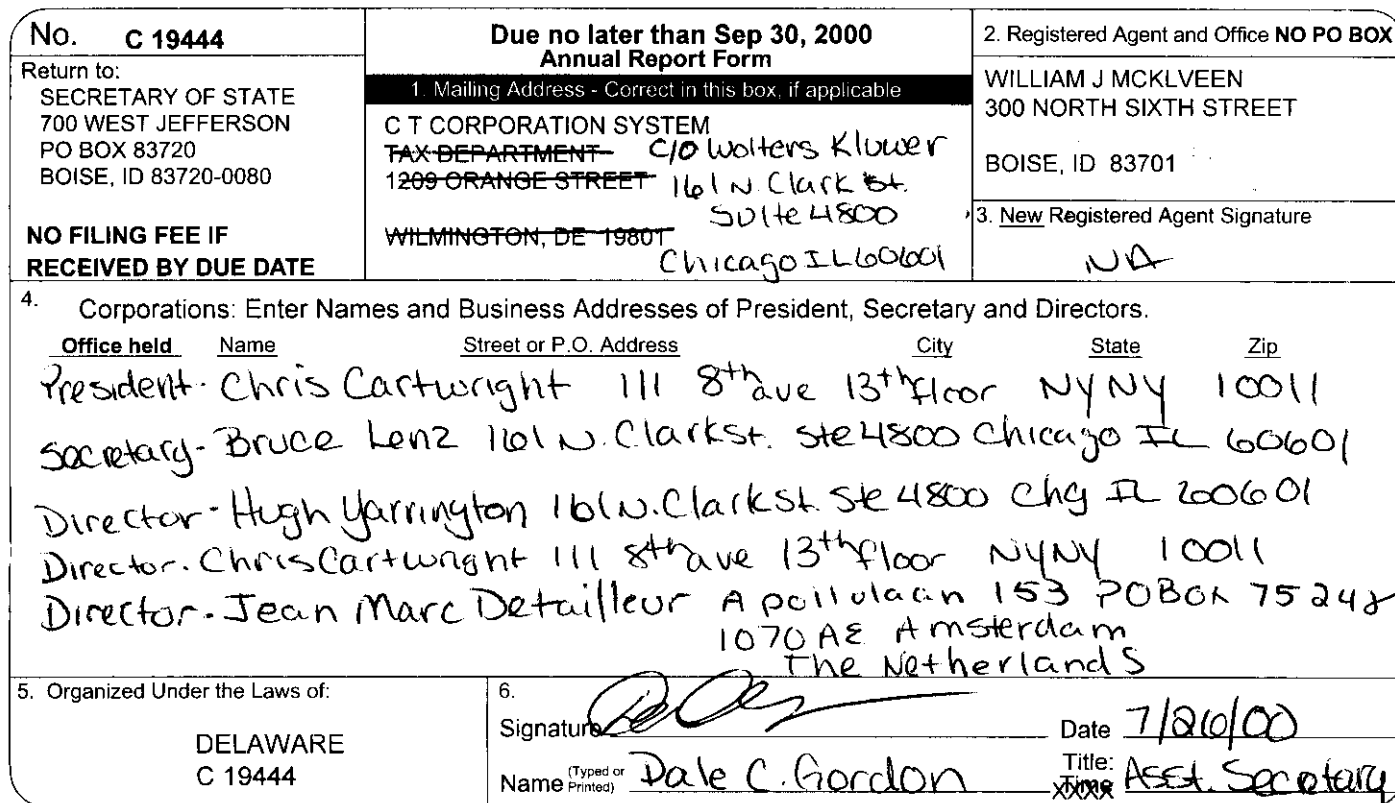 No. C 19444
Return to:
SECRETARY OF STATE
700 WEST JEFFERSON
PO BOX 83720
BOISE, ID 83720-0080
NO FILING FEE IF
RECEIVED BY DUE DATE
Due no later than Sep 30, 2000
Annual Report Form
1. Mailing Address - Correct in this box, if applicable
C T CORPORATION SYSTEM
TAX DEPARTMENT C/O Wolters Kluwer
1209 ORANGE STREET 161 N. Clark St.
Suite 4800
WILMINGTON, DE 19801
Chicago IL 60601
2. Registered Agent and Office NO PO BOX
WILLIAM J MCKLVEEN
300 NORTH SIXTH STREET
BOISE, ID 83701
3. New Registered Agent Signature
NA
4. Corporations: Enter Names and Business Addresses of President, Secretary and Directors.
Office held Name Street or P.O. Address City State Zip
President - Chris Cartwright 111 8th ave 13th floor NY NY 10011
Secretary - Bruce Lenz 161 N. Clark St. Ste 4800 Chicago IL 60601
Director - Hugh Yarrington 161 N. Clark St. Ste 4800 Chg IL 60601
Director - Chris Cartwright 111 8th ave 13th floor NY NY 10011
Director - Jean Marc Detailleur Apollolaan 153 PO BOX 75248
1070 AE Amsterdam
The Netherlands
5. Organized Under the Laws of:
DELAWARE
C 19444
6.
Signature Date 7/26/00
Name (Typed or Printed) Dale C. Gordon Title: Asst. Secretary